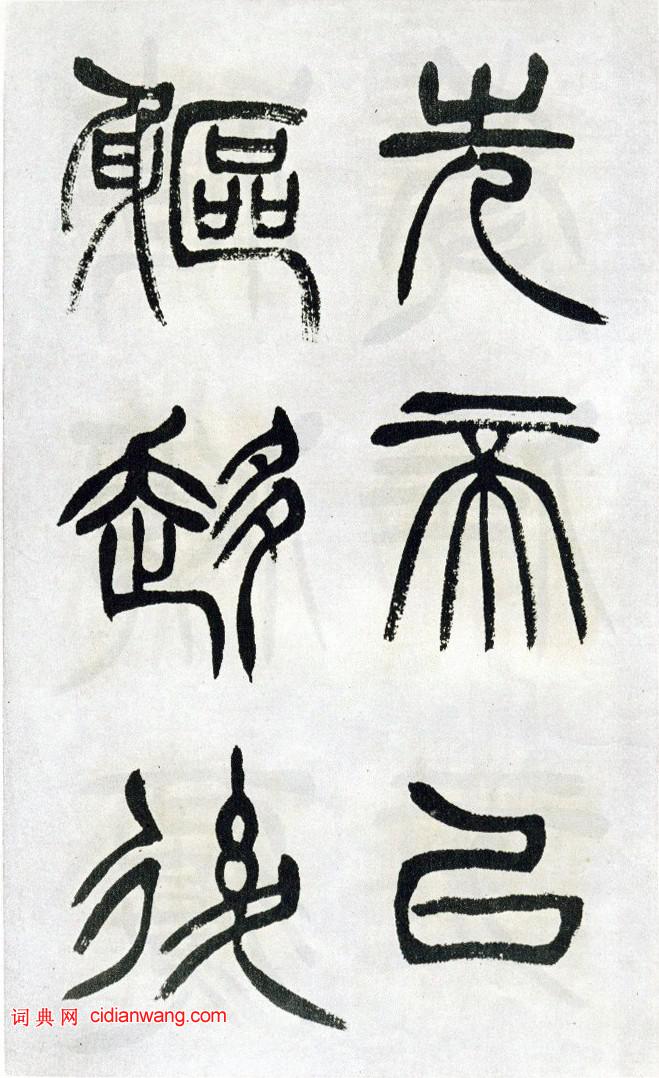 先帝以
軀趍後
词典网 cidianwang.com